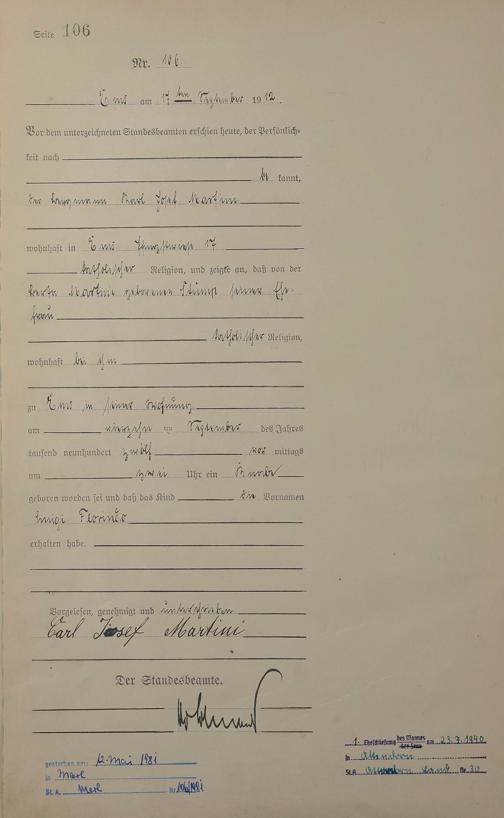 Seite 106
Nr. 106.
Ems am 17ten September 1912.
Vor dem unterzeichneten Standesbeamten erschien heute, der Persönlich-
keit nach
be kannt,
der Karl Josef Martini
wohnhaft in Ems 17
katholischer Religion, und zeigte an, daß von der
Martini geborenen Stump seiner Ehe-
frau
katholischer Religion,
wohnhaft bei ihm
zu Ems in seiner Wohnung
am vierzehn ten September des Jahres
tausend neunhundert zwölf vor mittags
um zwei Uhr ein Knabe
geboren worden sei und daß das Kind die Vornamen
Luigi
erhalten habe.
Vorgelesen, genehmigt und unterschrieben
Carl Josef Martini
Der Standesbeamte.
1. Eheschließung des Mannes der Frau am 23.7.1940
in Attendorn
St.A. Attendorn Land Nr. 30
gestorben am: 12. Mai 1981
in Marl
St.A. Marl Nr.